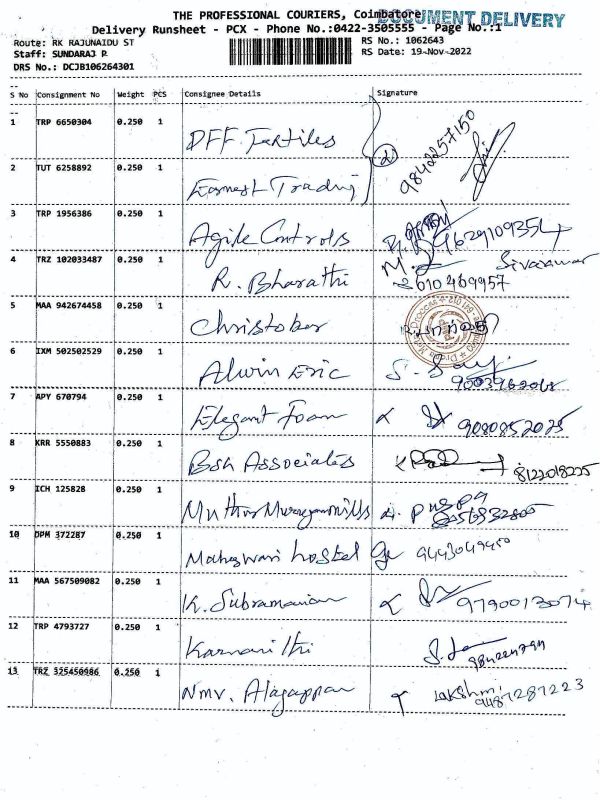 THE PROFESSIONAL COURIERS, Coimbatore
DOCUMENT DELIVERY
Delivery Runsheet - PCX - Phone No.:0422-3505555 - Page No.:1
Route: RK RAJUNAIDU ST
RS No.: 1062643
Staff: SUNDARAJ P
RS Date: 19-Nov-2022
DRS No.: DCJB106264301
S No Consignment No Weight PCS Consignee Details Signature
1 TRP 6650304 0.250 1 DFF Textiles 9842257150
2 TUT 6258892 0.250 1 Earnest Trading
3 TRP 1956386 0.250 1 Agile Controls 9629109354
4 TRZ 102033487 0.250 1 R. Bharathi Sivakumar
5 MAA 942674458 0.250 1 Christober
6 IXM 502502529 0.250 1 Alwin Eric
7 APY 670794 0.250 1 Elegant Foam 9080852025
8 KRR 5550883 0.250 1 Bsh Associates 8122018225
9 ICH 125828 0.250 1 Muthu Murugan mills
10 DPM 372287 0.250 1 Maheswari hostel 9443049450
11 MAA 567509082 0.250 1 K. Subramanian 9790013074
12 TRP 4793727 0.250 1
13 TRZ 325450986 0.250 1 Nmv. Alagappan Lakshmi 9487287223